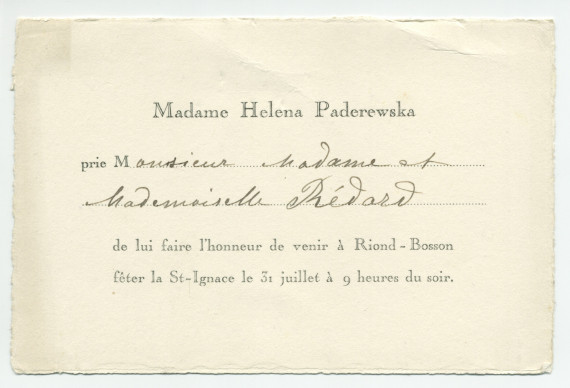 Madame Helena Paderewska
prie Monsieur Madame et
Mademoiselle Rédard
de lui faire l'honneur de venir à Riond-Bosson
fêter la St-Ignace le 31 juillet à 9 heures du soir.